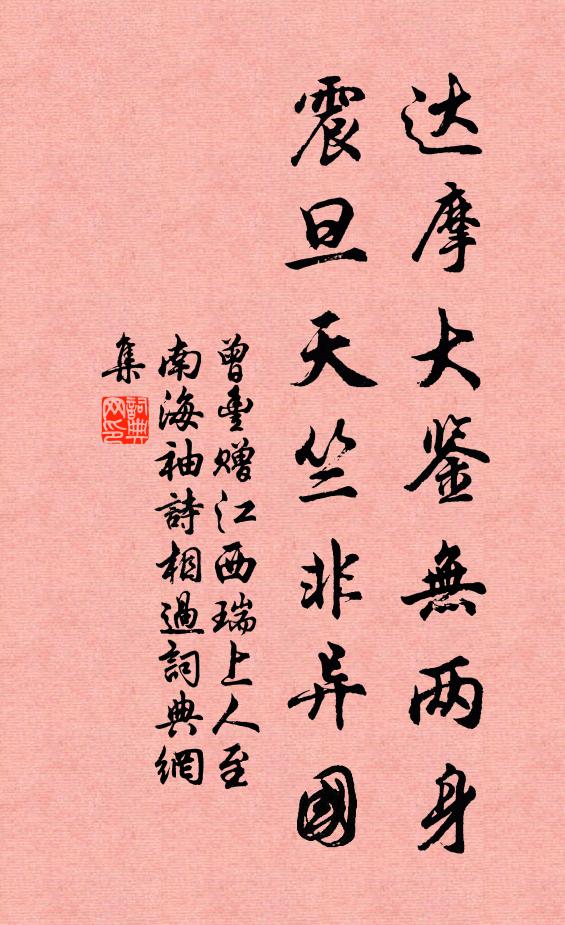 达摩大鉴無两身
震旦天竺非异國
曾豊赠江西瑞上人至
南海袖詩相過詞典網
集
詞典
网印